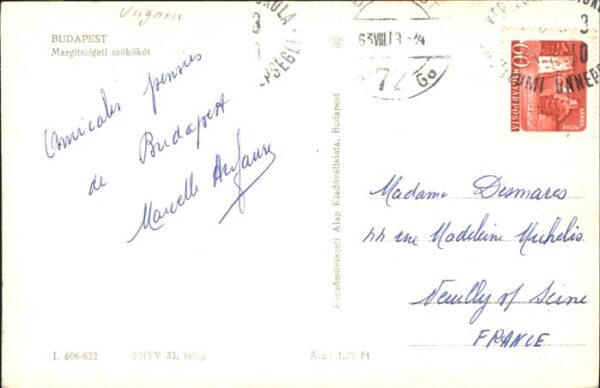 Ungarn
BUDAPEST
Margitszigeti szökőkút
Amicales pensées
de Budapest
Marcelle
63 VIII 13
7
60 MAGYAR POSTA
Képzőművészeti Alap Kiadóvállalata, Budapest
Madame Desmares
44 rue Madeleine Michelis
Neuilly of Seine
FRANCE
I. 606-632
FNYV 23. telep
Ára: 1,20 Ft